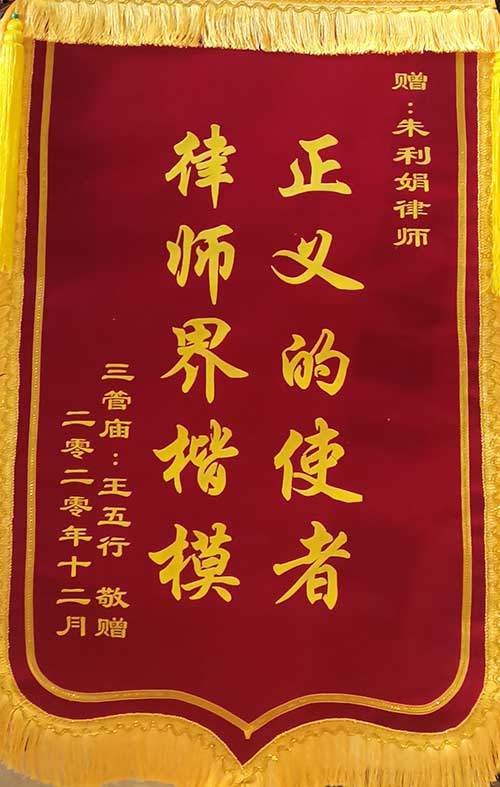 赠：朱利娟律师
正义的使者
律师界楷模
三管庙：王五行 敬赠
二零二零年十二月